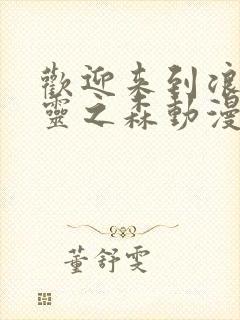 歡迎来到浪
靈之森動漫
董舒雯